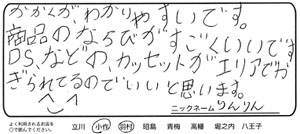 がかくが、わかりやすいです。
商品のならびがすごくいいです
DS、などの、カッセットがエリアでかぎ
られてるのでいいと思います。
ニックネーム りんりん
よく利用されるお店を
○で囲んでください。
立川 小作 羽村 昭島 青梅 高幡 堀之内 八王子